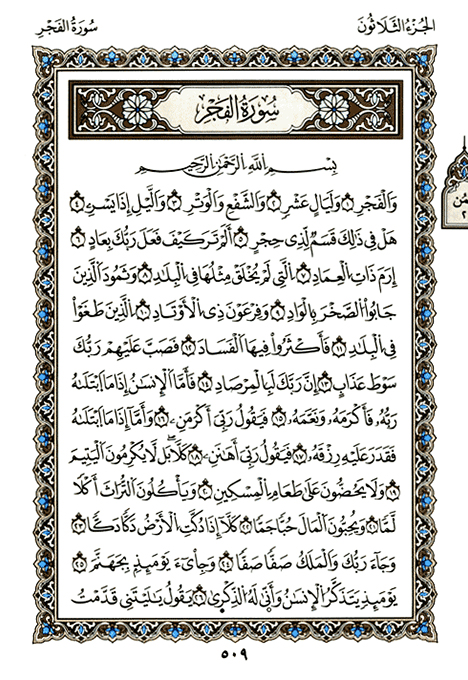 الجُزْءُ الثَّلَاثُونَ
سُورَةُ الفَجْرِ
سُورَةُ الْفَجْرِ
بِسْمِ اللَّهِ الرَّحْمَٰنِ الرَّحِيمِ
وَالْفَجْرِ ١ وَلَيَالٍ عَشْرٍ ٢ وَالشَّفْعِ وَالْوَتْرِ ٣ وَالَّيْلِ إِذَا يَسْرِۦ ٤
هَلْ فِي ذَٰلِكَ قَسَمٌ لِّذِي حِجْرٍ ٥ أَلَمْ تَرَ كَيْفَ فَعَلَ رَبُّكَ بِعَادٍ ٦
إِرَمَ ذَاتِ الْعِمَادِ ٧ الَّتِي لَمْ يُخْلَقْ مِثْلُهَا فِي الْبِلَٰدِ ٨ وَثَمُودَ الَّذِينَ
جَابُوا الصَّخْرَ بِالْوَادِ ٩ وَفِرْعَوْنَ ذِي الْأَوْتَادِ ١٠ الَّذِينَ طَغَوْا
فِي الْبِلَٰدِ ١١ فَأَكْثَرُوا فِيهَا الْفَسَادَ ١٢ فَصَبَّ عَلَيْهِمْ رَبُّكَ
سَوْطَ عَذَابٍ ١٣ إِنَّ رَبَّكَ لَبِالْمِرْصَادِ ١٤ فَأَمَّا الْإِنسَٰنُ إِذَا مَا ابْتَلَىٰهُ
رَبُّهُۥ فَأَكْرَمَهُۥ وَنَعَّمَهُۥ ١٥ فَيَقُولُ رَبِّي أَكْرَمَنِۦ ١٦ وَأَمَّا إِذَا مَا ابْتَلَىٰهُ
فَقَدَرَ عَلَيْهِ رِزْقَهُۥ ١٧ فَيَقُولُ رَبِّي أَهَٰنَنِۦ ١٨ كَلَّا بَل لَّا يُكْرِمُونَ الْيَتِيمَ
١٩ وَلَا يَحُضُّونَ عَلَىٰ طَعَامِ الْمِسْكِينِ ٢٠ وَيَأْكُلُونَ التُّرَاثَ أَكْلًا
لَّمًّا ٢١ وَيُحِبُّونَ الْمَالَ حُبًّا جَمًّا ٢٢ كَلَّا إِذَا دُكَّتِ الْأَرْضُ دَكًّا دَكًّا ٢٣
وَجَاءَ رَبُّكَ وَالْمَلَكُ صَفًّا صَفًّا ٢٤ وَجِاْيٓءَ يَوْمَئِذٍ بِجَهَنَّمَ ٢٥
يَوْمَئِذٍ يَتَذَكَّرُ الْإِنسَٰنُ وَأَنَّىٰ لَهُ الذِّكْرَىٰ ٢٦ يَقُولُ يَٰلَيْتَنِي قَدَّمْتُ
٥٠٩